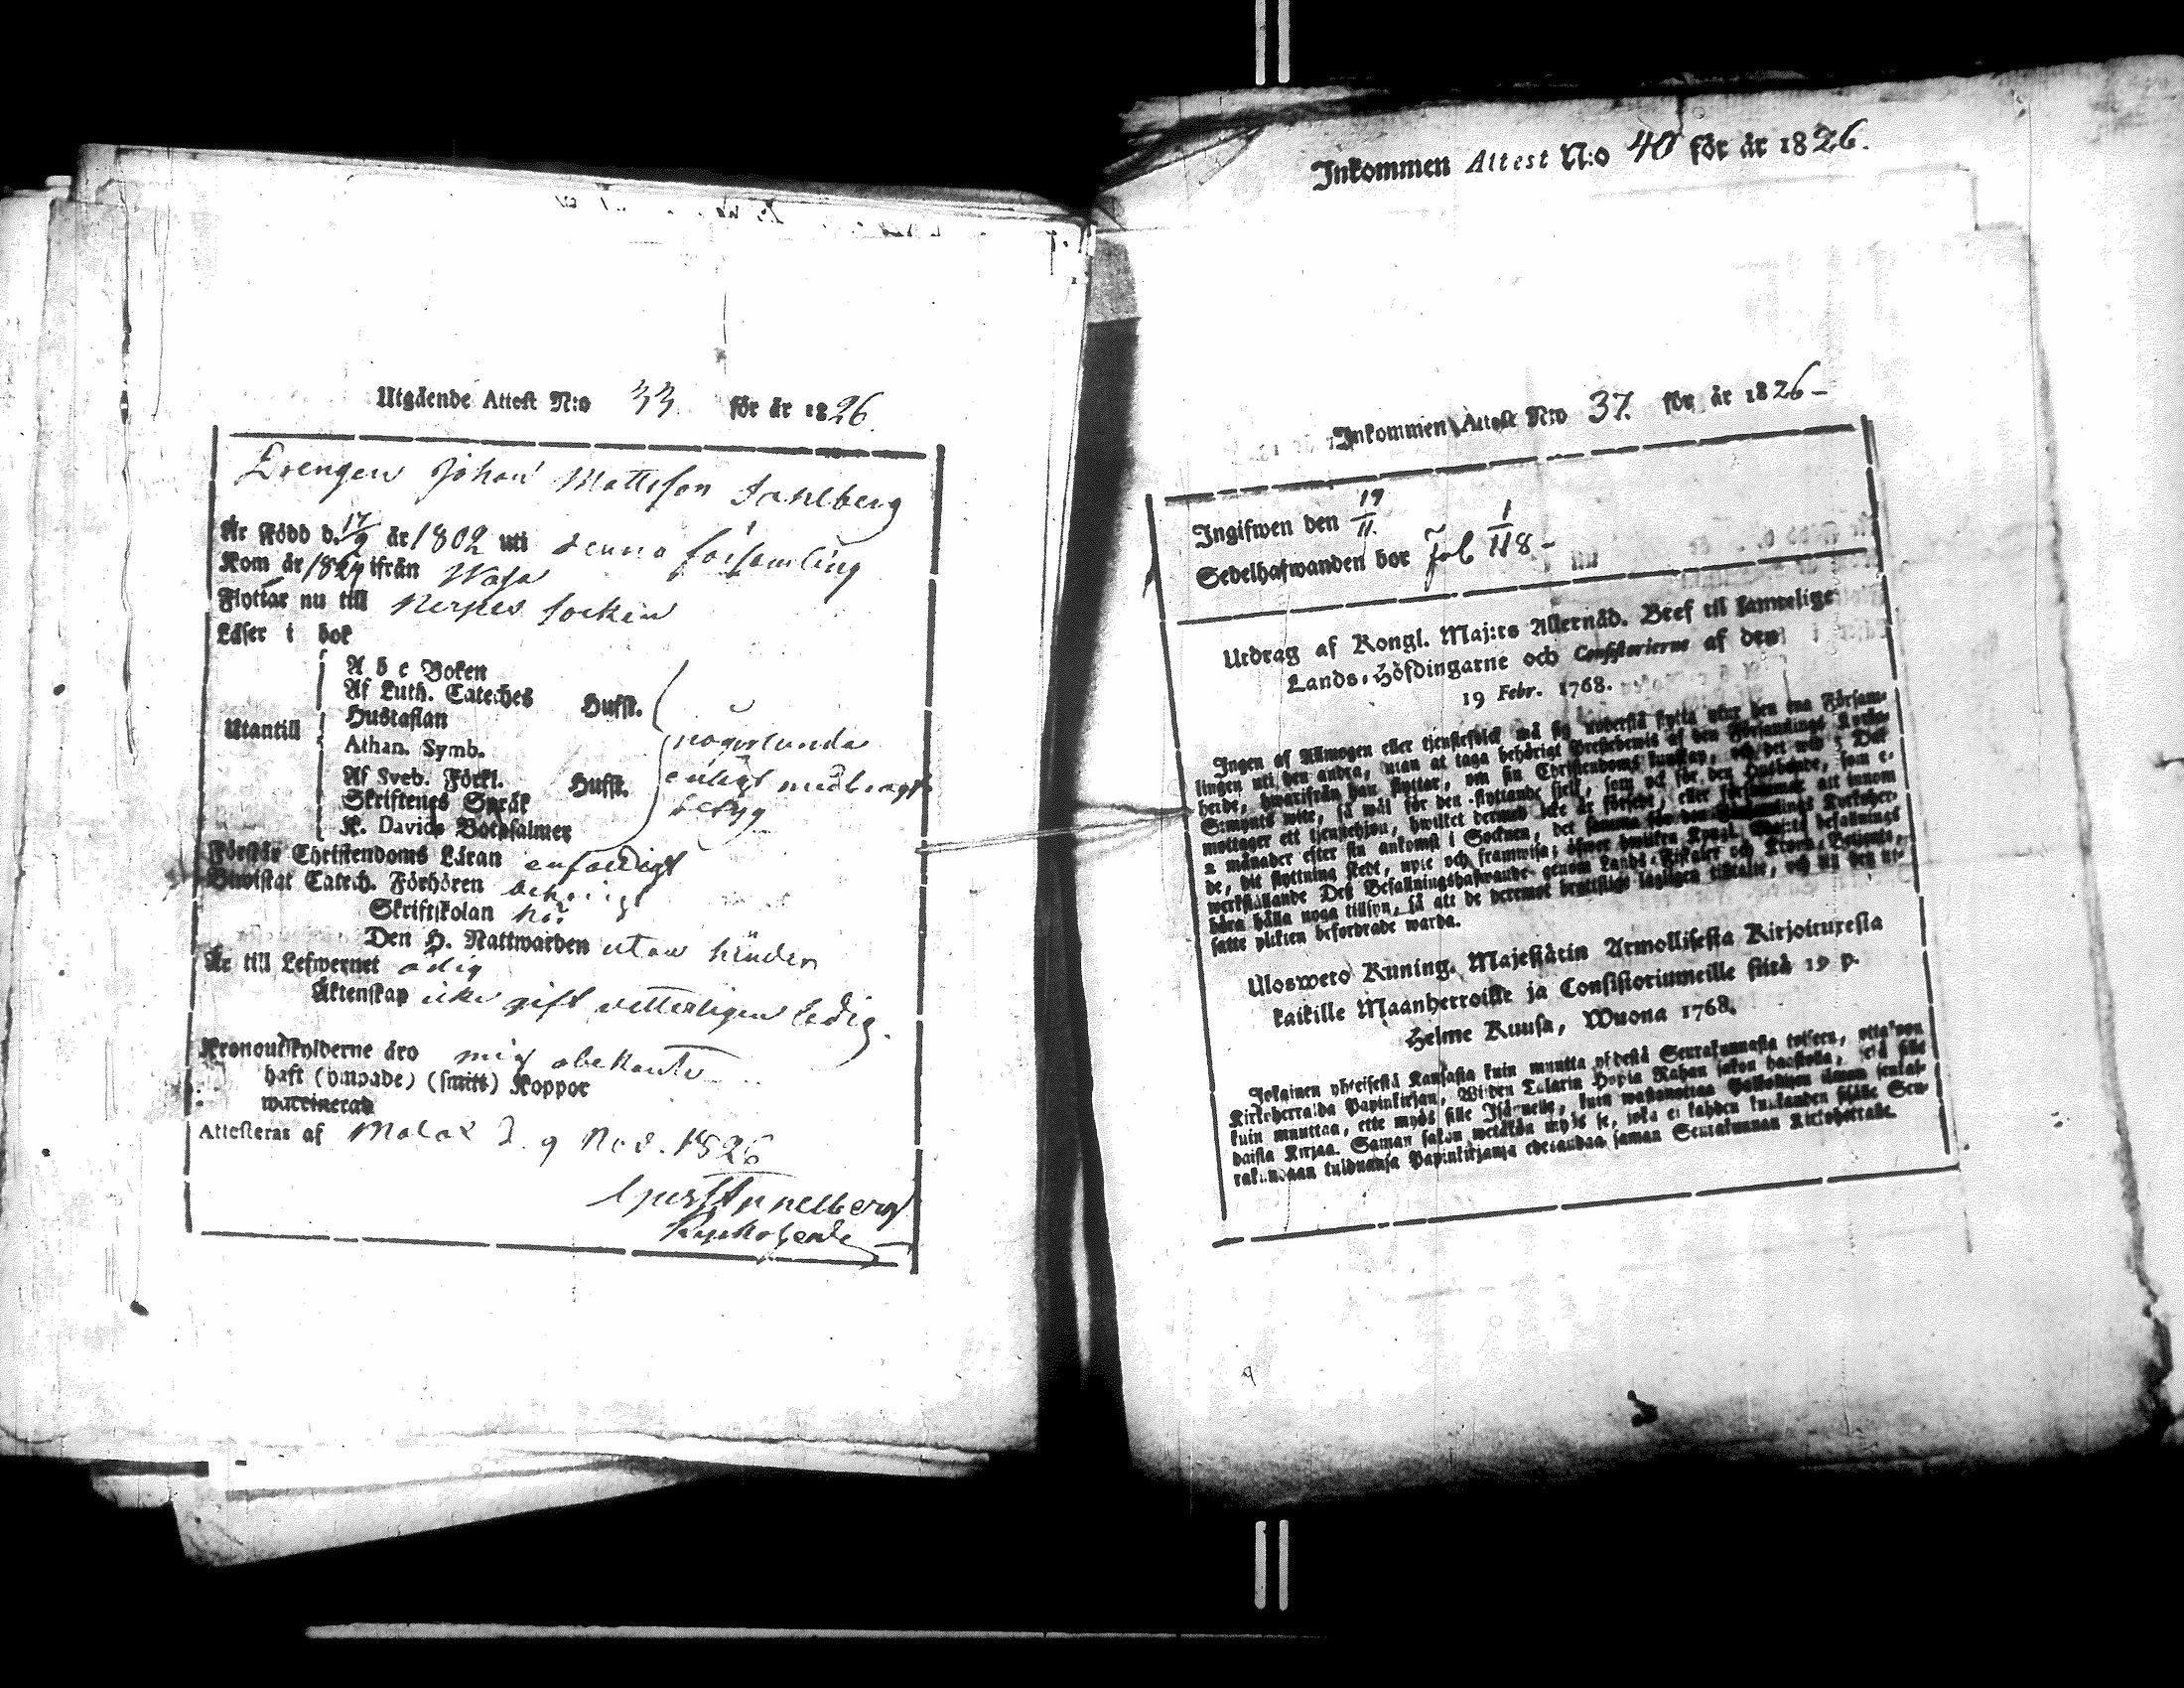 Utgående Attest N:o 33. för år 1826.
Drengen Johan Mattsson Dahlberg
Är Född d. 17/9 år 1802 uti denna församling
Kom år 1824 ifrån Wasa
Flyttar nu till Nerpes socken
Läser i bok
Utantill
A b c Boken
Af Luth. Cateches Hufst.
Hustaflan
Athan. Symb. någorlunda
Af Sveb. Förkl. Hufst. enligt medbragt
Skriftenes Språk betyg
K. Davids Botpsalmer
Förstår Christendoms Läran enfaldigt
Biwistat Catech. Förhören
Skriftskolan
Den H. Nattwarden utan hinder
Är till Lefwernet
Äktenskap icke gift vetterligen ledig.
Kronoutskylderne äro mig obekante
haft (ympade) (smitt) Koppor
waccinerad
Attesteras af Malax d. 9 Nov. 1826
Kyrkoherde
Inkommen Attest N:o 40 för år 1826.
Inkommen Attest N:o 37. för år 1826 –
Ingifwen den 19/11.
Sedelhafwanden bor Fol 1/118 –
Utdrag af Kongl. Maj:ts Allernåd. Bref til samtelige
Lands-Höfdingarne och Consistorierne af den
19 Febr. 1768.
Ingen af Allmogen eller tjenstefolck må sig understå flytta utur den ena Försam-
lingen uti den andra, utan at taga behörigt Prestebewis af den Församlings Kyrko-
herde, hwarifrån han flyttar, om sin Christendoms kunskap, och det wid 5 Dal.
S:mynts wite, så wäl för den flyttande sielf, som ock för den Husbonde, som e-
mottager ett tjenstehjon, hwilket dermed icke är försedt, eller försummat att innom
2 månader efter sin ankomst i Socknen, det samma för den Församlings Kyrkoher-
de, dit flyttning skedt, upte och framwisa; öfwer hwilken Kongl. Maj:ts befallnings
werkställande Des Befallningshafwande genom Lands-Fiskaler och Krono-Betjente,
böra hålla noga tillsyn, så att de deremot brottslige lagligen tilltalte, och till den ut-
satte plikten befordrade warda.
Uloswero Kuning. Majestätin Armollisesta Kirjoituxesta
kaikille Maanherroille ja Consistoriumeille siitä 19 p.
Helme Kuusa, Wuona 1768.
Jokainen yhteisestä Kansasta kuin muutta yhdestä Seurakunnasta toiseen, ottakoon
Kirkoherralda Papinkirjan, Wijden Talarin Hopia Rahan sakon haastolla, sekä sille
kuin muuttaa, ette myös sille Isännelle, kuin wastanottaa Palkollisen ilman senkal-
daista Kirjaa. Saman sakon wetäkön myös se, joka ei kahden kuukauden sisälle Seu-
rakundaan tulduansa Papinkirjansa edesanda saman Seurakunnan Kirkoherralle.